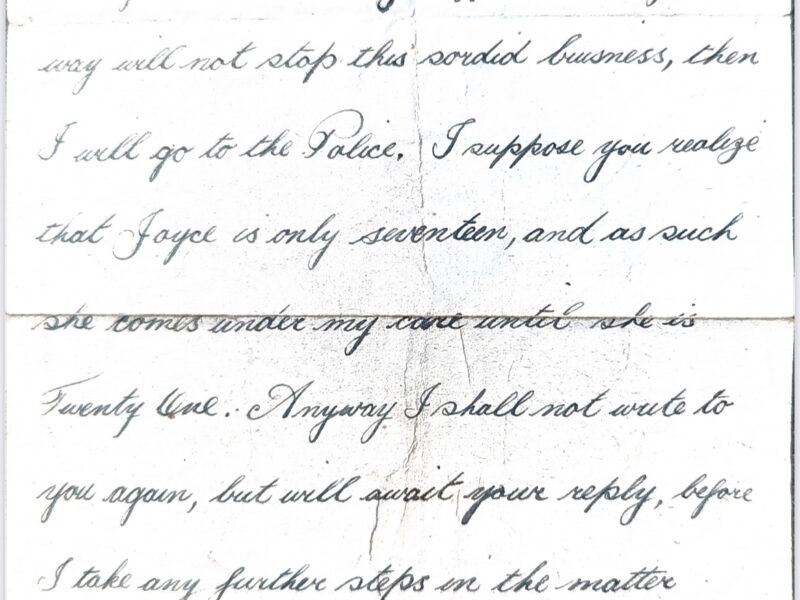 way will not stop this sordid buisness, then
I will go to the Police. I suppose you realize
that Joyce is only seventeen, and as such
she comes under my care until she is
Twenty One. Anyway I shall not write to
you again, but will await your reply, before
I take any further steps in the matter